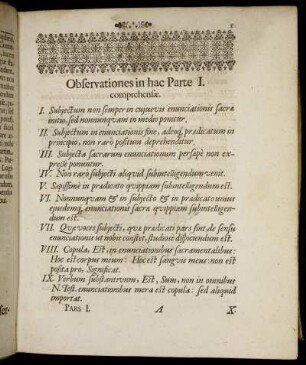 1
Observationes in hac Parte I.
comprehensæ.
I. Subjectum non semper in cujusvis enunciationis sacræ
initio, sed nonnunquam in medio ponitur.
II. Subjectum in enunciationis fine, adeoq; prædicatum in
principio, non rarò positum deprehenditur.
III. Subjecta sacrarum enunciationum persæpè non ex-
pressè ponuntur.
IV. Non rarò subjecti aliquid subintelligendum venit.
V. Sæpissimè in prædicato quippiam subintelligendum est.
VI. Nonnunquam & in subjecto & in prædicato unius
ejusdemq; enunciationis sacræ quippiam subintelligen-
dum est.
VII. Quæ voces subjecti, quæ prædicati pars sint, de sensu
enunciationis ut nobis constet, studiosè disquirendum est.
VIII. Copula, Est, in enunciationibus sacramentalibus:
Hoc est corpus meum: Hic est sangvis meus: non est
posita pro, Significat.
IX. Verbum substantivum, Est, Sum, non in omnibus
N. Test. enunciationibus mera est copula: sed aliquid
importat.
PARS I.
A
X.